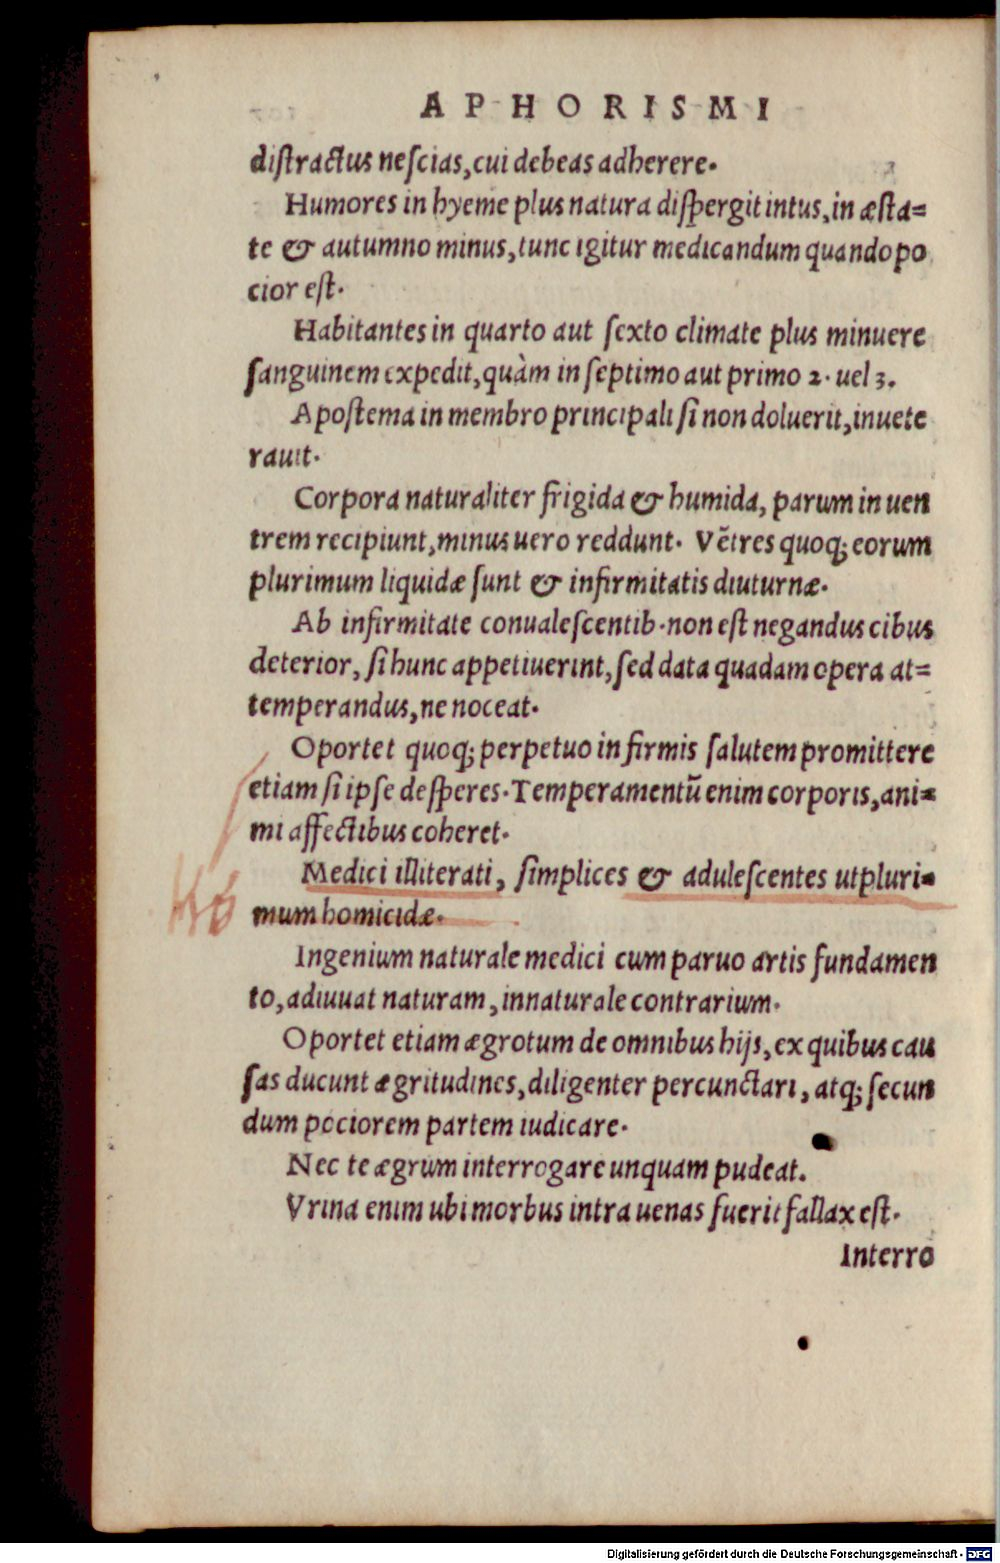 APHORISMI
distractus nescias, cui debeas adherere.
Humores in hyeme plus natura dispergit intus, in æsta=
te & autumno minus, tunc igitur medicandum quando po
cior est.
Habitantes in quarto aut sexto climate plus minuere
sanguinem expedit, quàm in septimo aut primo 2. uel 3.
Apostema in membro principali si non doluerit, inuete
rauit.
Corpora naturaliter frigida & humida, parum in uen
trem recipiunt, minus uero reddunt. Vẽtres quoq; eorum
plurimum liquidæ sunt & infirmitatis diuturnæ.
Ab infirmitate conualescentib. non est negandus cibus
deterior, si hunc appetiuerint, sed data quadam opera at=
temperandus, ne noceat.
Oportet quoq; perpetuo infirmis salutem promittere
etiam si ipse desperes. Temperamentũ enim corporis, ani=
mi affectibus coheret.
Medici illiterati, simplices & adulescentes utpluri=
mum homicidæ.
Ingenium naturale medici cum paruo artis fundamen
to, adiuuat naturam, innaturale contrarium.
Oportet etiam ægrotum de omnibus hijs, ex quibus cau
sas ducunt ægritudines, diligenter percunctari, atq; secun
dum pociorem partem iudicare.
Nec te ægrum interrogare unquam pudeat.
Vrina enim ubi morbus intra uenas fuerit fallax est.
Interro
Digitalisierung gefördert durch die Deutsche Forschungsgemeinschaft - DFG